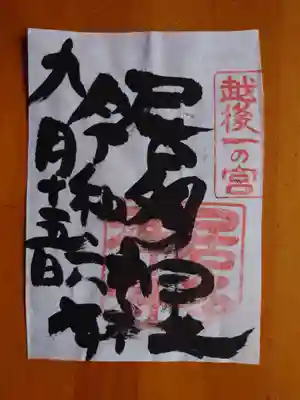 越後一の宮
居多神社
令和六年
九月十五日